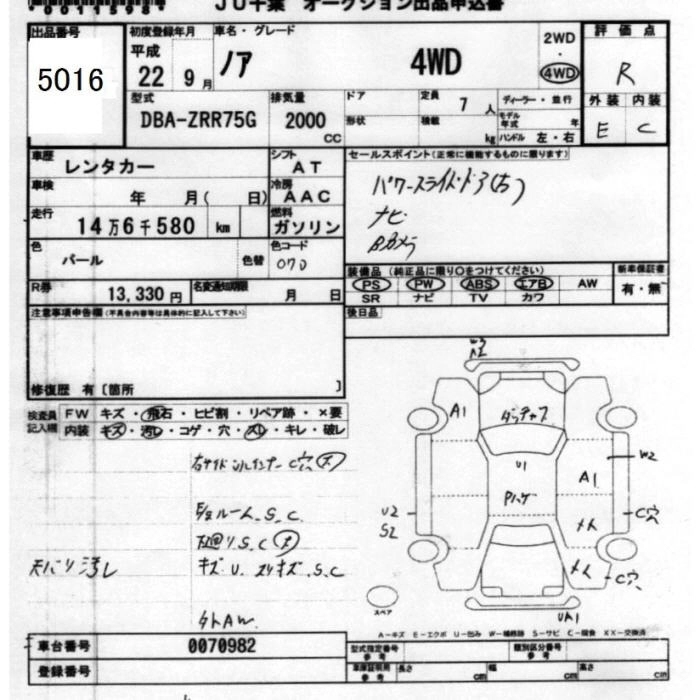 00115984
JU千葉 オークション出品申込書
出品番号
5016
初度登録年月
平成
22 9月
車名・グレード
ノア 4WD
2WD
・
4WD
評価点
R
外装 内装
E C
型式
DBA-ZRR75G
排気量
2000
CC
ドア
定員 7 人
形状
積載 kg
ディーラー・並行
モデル年式 年
ハンドル 左・右
車歴
レンタカー
シフト
AT
車検
年 月( 日)
冷房
AAC
走行
14万6千580 km
燃料
ガソリン
色
パール
色替
色コード
070
R券
13,330 円
名変通知期限
月 日
セールスポイント(正常に機能するものに限ります)
パワースライドドア(右)
ナビ
Bカメラ
装備品(純正品に限り○をつけてください)
PS PW ABS エアB AW
SR ナビ TV カワ
新車保証書
有・無
後日品
注意事項申告欄(不具合内容等は具体的に記入して下さい)
修復歴 有〔箇所 〕
検査員記入欄
FW キズ・飛石・ヒビ割・リペア跡・×要
内装 キズ・汚レ・コゲ・穴・スレ・キレ・破レ
右サイドシルインナーC穴(大)
E/gルーム.S.C
下廻りS.C(大)
天バリ汚レ
キズU.スリキズ.S.C
社外AW
W3
A1
U1
A1
W2
U2
S2
C穴
C穴
UA1
スペア
A-キズ E-エクボ U-凹み W-補修跡 S-サビ C-腐食 XX-交換済
車台番号
0070982
登録番号
型式指定番号
参考
類別区分番号
参考
車庫証明用
参考
長さ cm
幅 cm
高さ cm